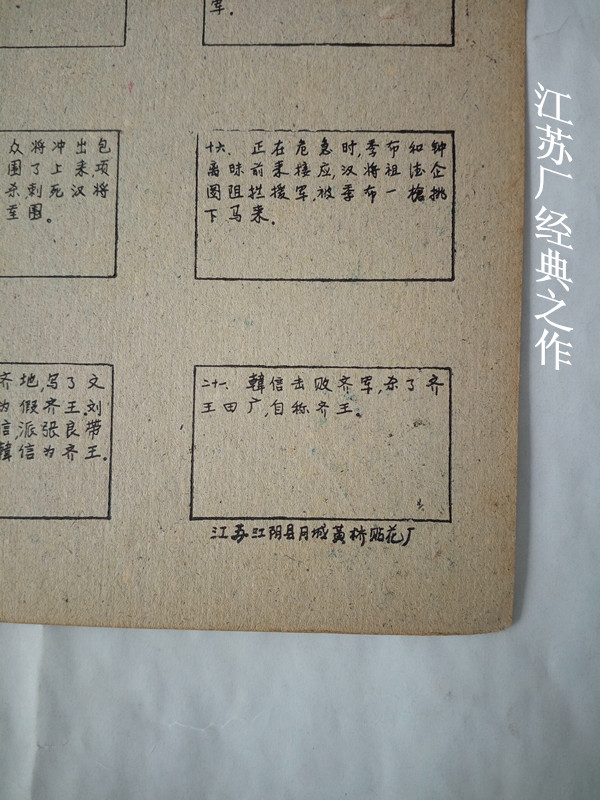 军。
众将冲出包
围了上来项
杀,刺死汉将
至围。
十六、正在危急时,季布和钟
离昧前来接应,汉将祖德企
图阻拦援军,被季布一槍挑
下马来。
齐地,写了文
为假齐王.刘
信,派张良带
韓信为齐王。
二十一、韓信击败齐军,杀了齐
王田广,自称齐王。
江苏江阴县月城黄桥贴花厂
江苏厂经典之作